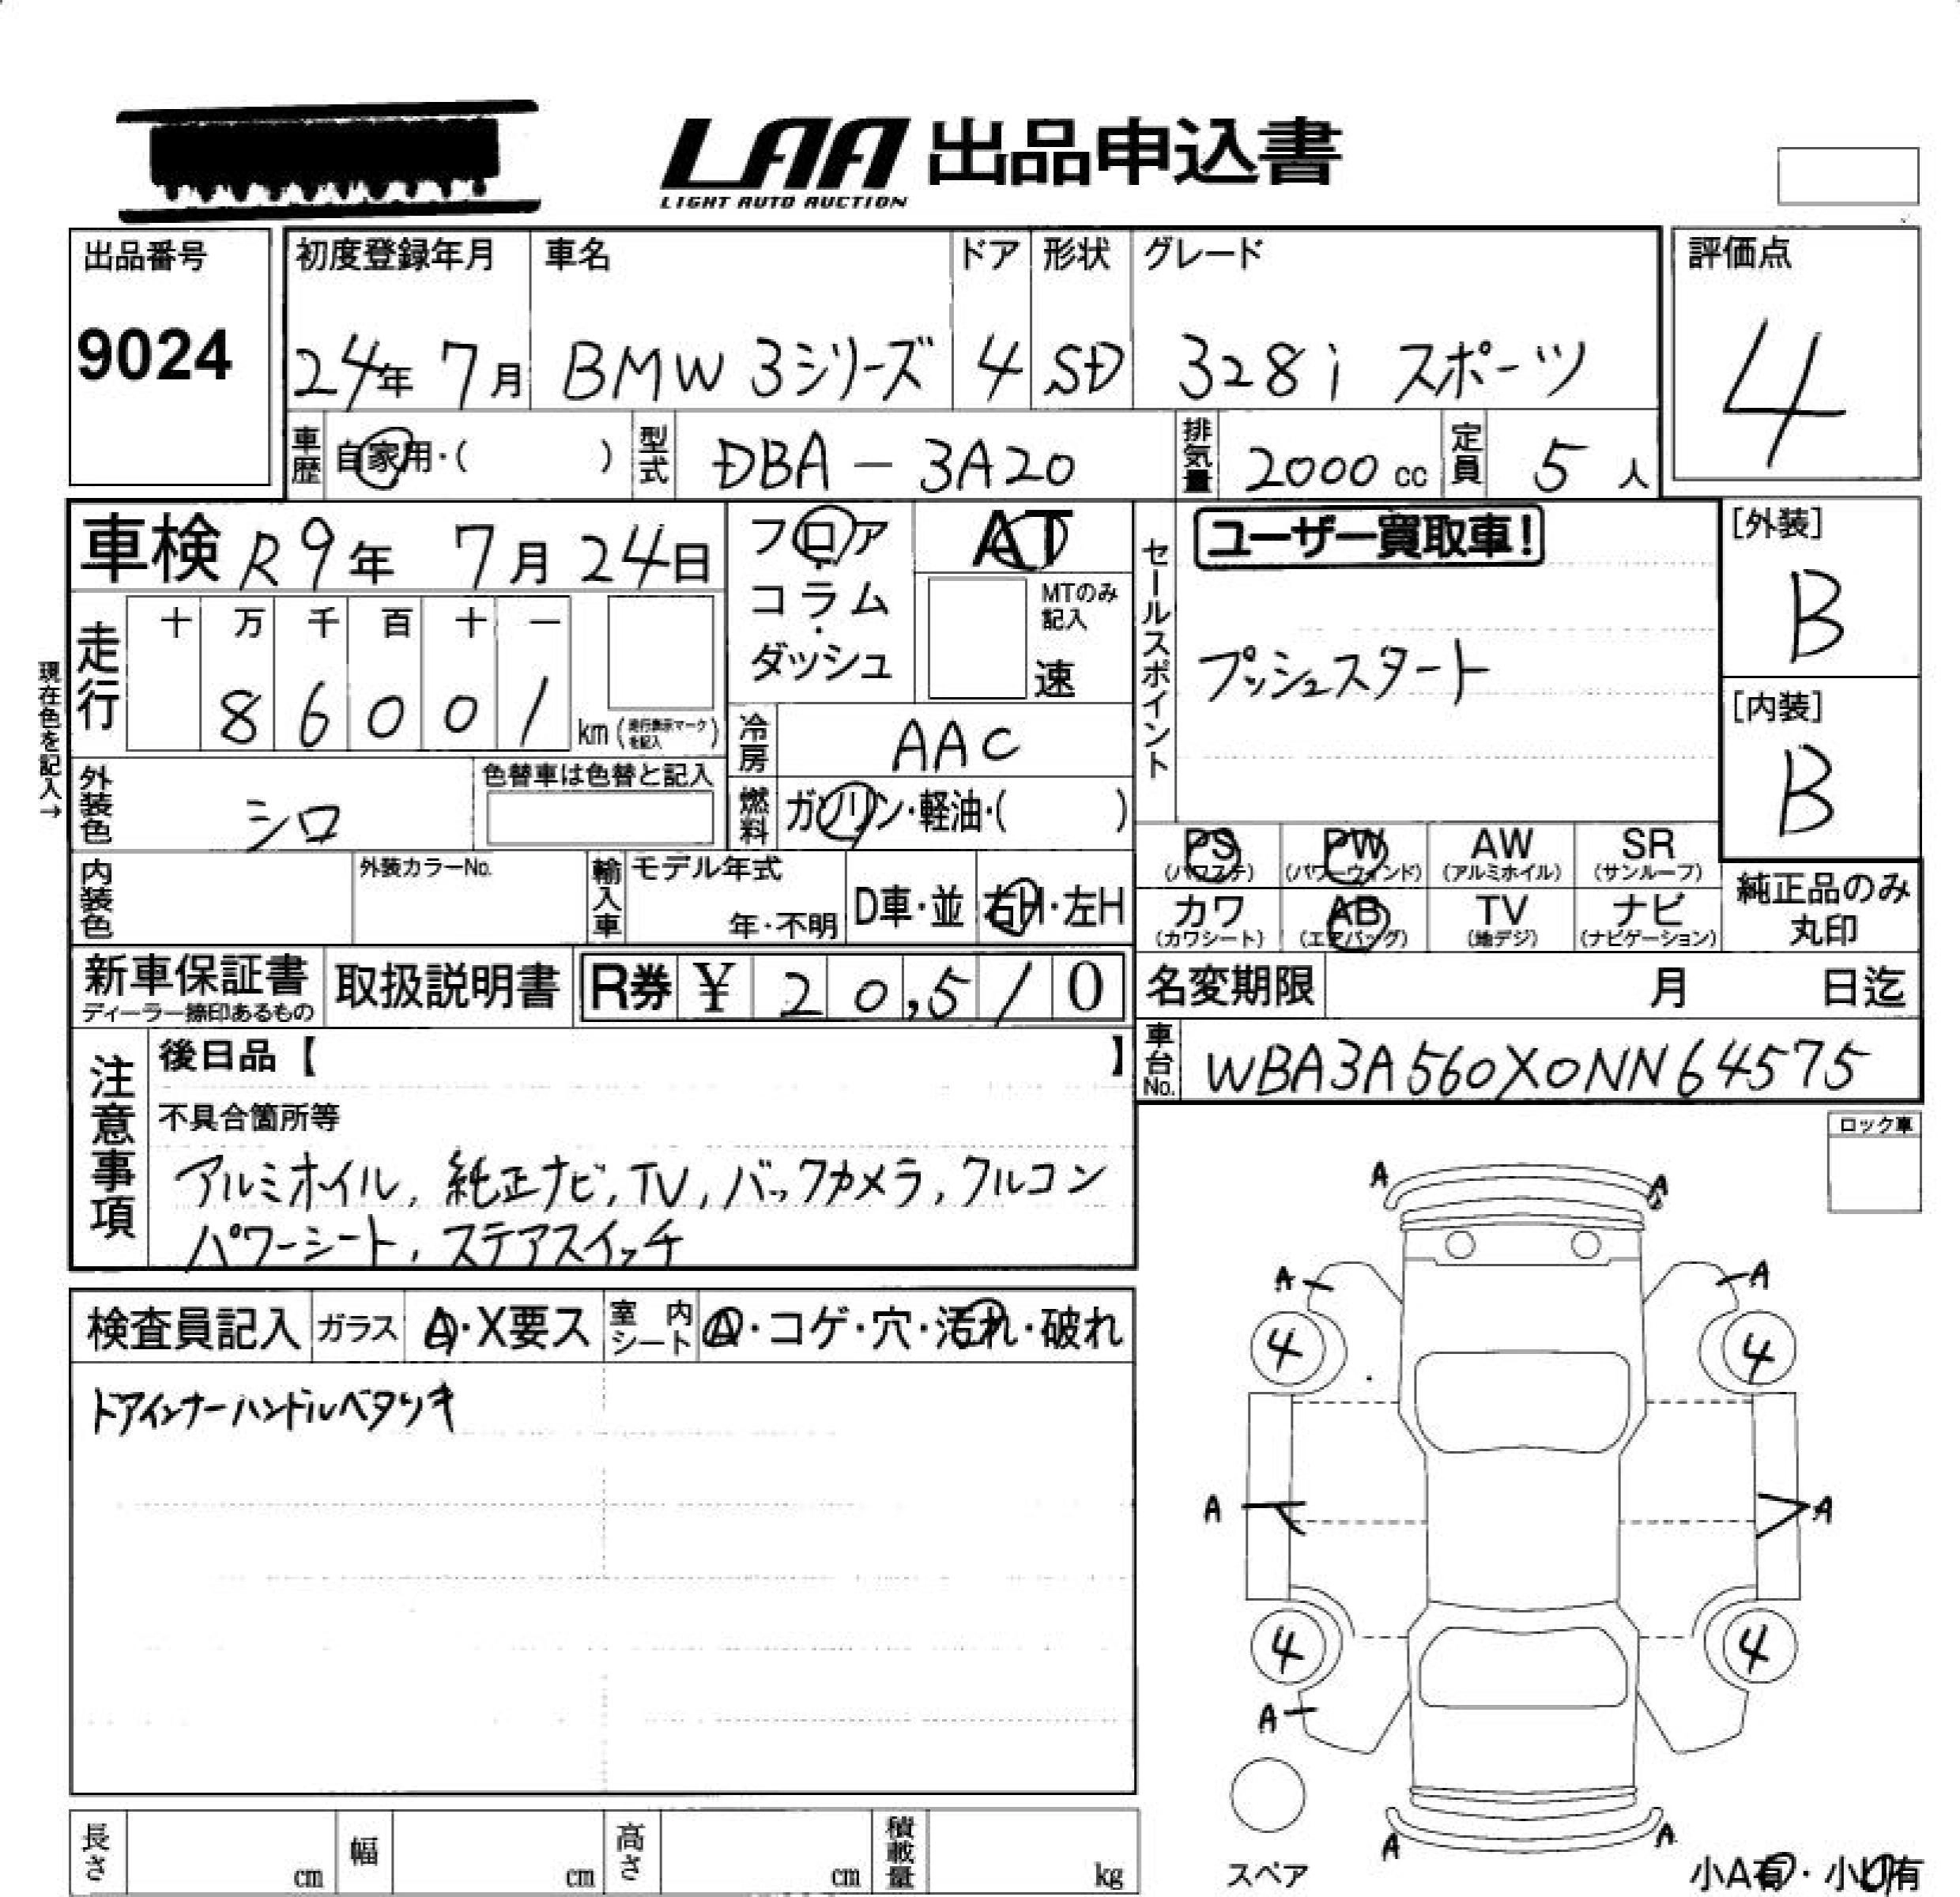 LAA 出品申込書
LIGHT AUTO AUCTION
出品番号
9024
初度登録年月
24年 7月
車名
BMW 3シリーズ
ドア
4
形状
SD
グレード
328i スポーツ
評価点
4
車歴 自家用・( )
型式 DBA-3A20
排気量 2000 cc
定員 5 人
車検 R9年 7月 24日
フロア・
コラム・
ダッシュ
AT
MTのみ記入
速
セールスポイント
ユーザー買取車!
プッシュスタート
[外装]
B
[内装]
B
現在色を記入→
走行
十 万 千 百 十 一
8 6 0 0 1
km (走行表示マークを記入)
冷房 AAC
外装色 シロ
色替車は色替と記入
燃料 ガソリン・軽油・( )
PS (パワステ)
PW (パワーウィンド)
AW (アルミホイル)
SR (サンルーフ)
カワ (カワシート)
AB (エアバッグ)
TV (地デジ)
ナビ (ナビゲーション)
純正品のみ
丸印
内装色
外装カラーNo.
輸入車
モデル年式
年・不明
D車・並
右H・左H
新車保証書
ディーラー捺印あるもの
取扱説明書
R券 ¥ 20,510
名変期限 月 日迄
車台No. WBA3A560X0NN64575
注意事項
後日品【 】
不具合箇所等
アルミホイル, 純正ナビ, TV, バックカメラ, クルコン
パワーシート, ステアスイッチ
ロック車
検査員記入
ガラス A・X要ス
室内シート A・コゲ・穴・汚れ・破れ
ドアインナーハンドルベタツキ
A A
A A
4 4
A A
4 4
A
A A
スペア
小A有・小U有
長さ cm
幅 cm
高さ cm
積載量 kg